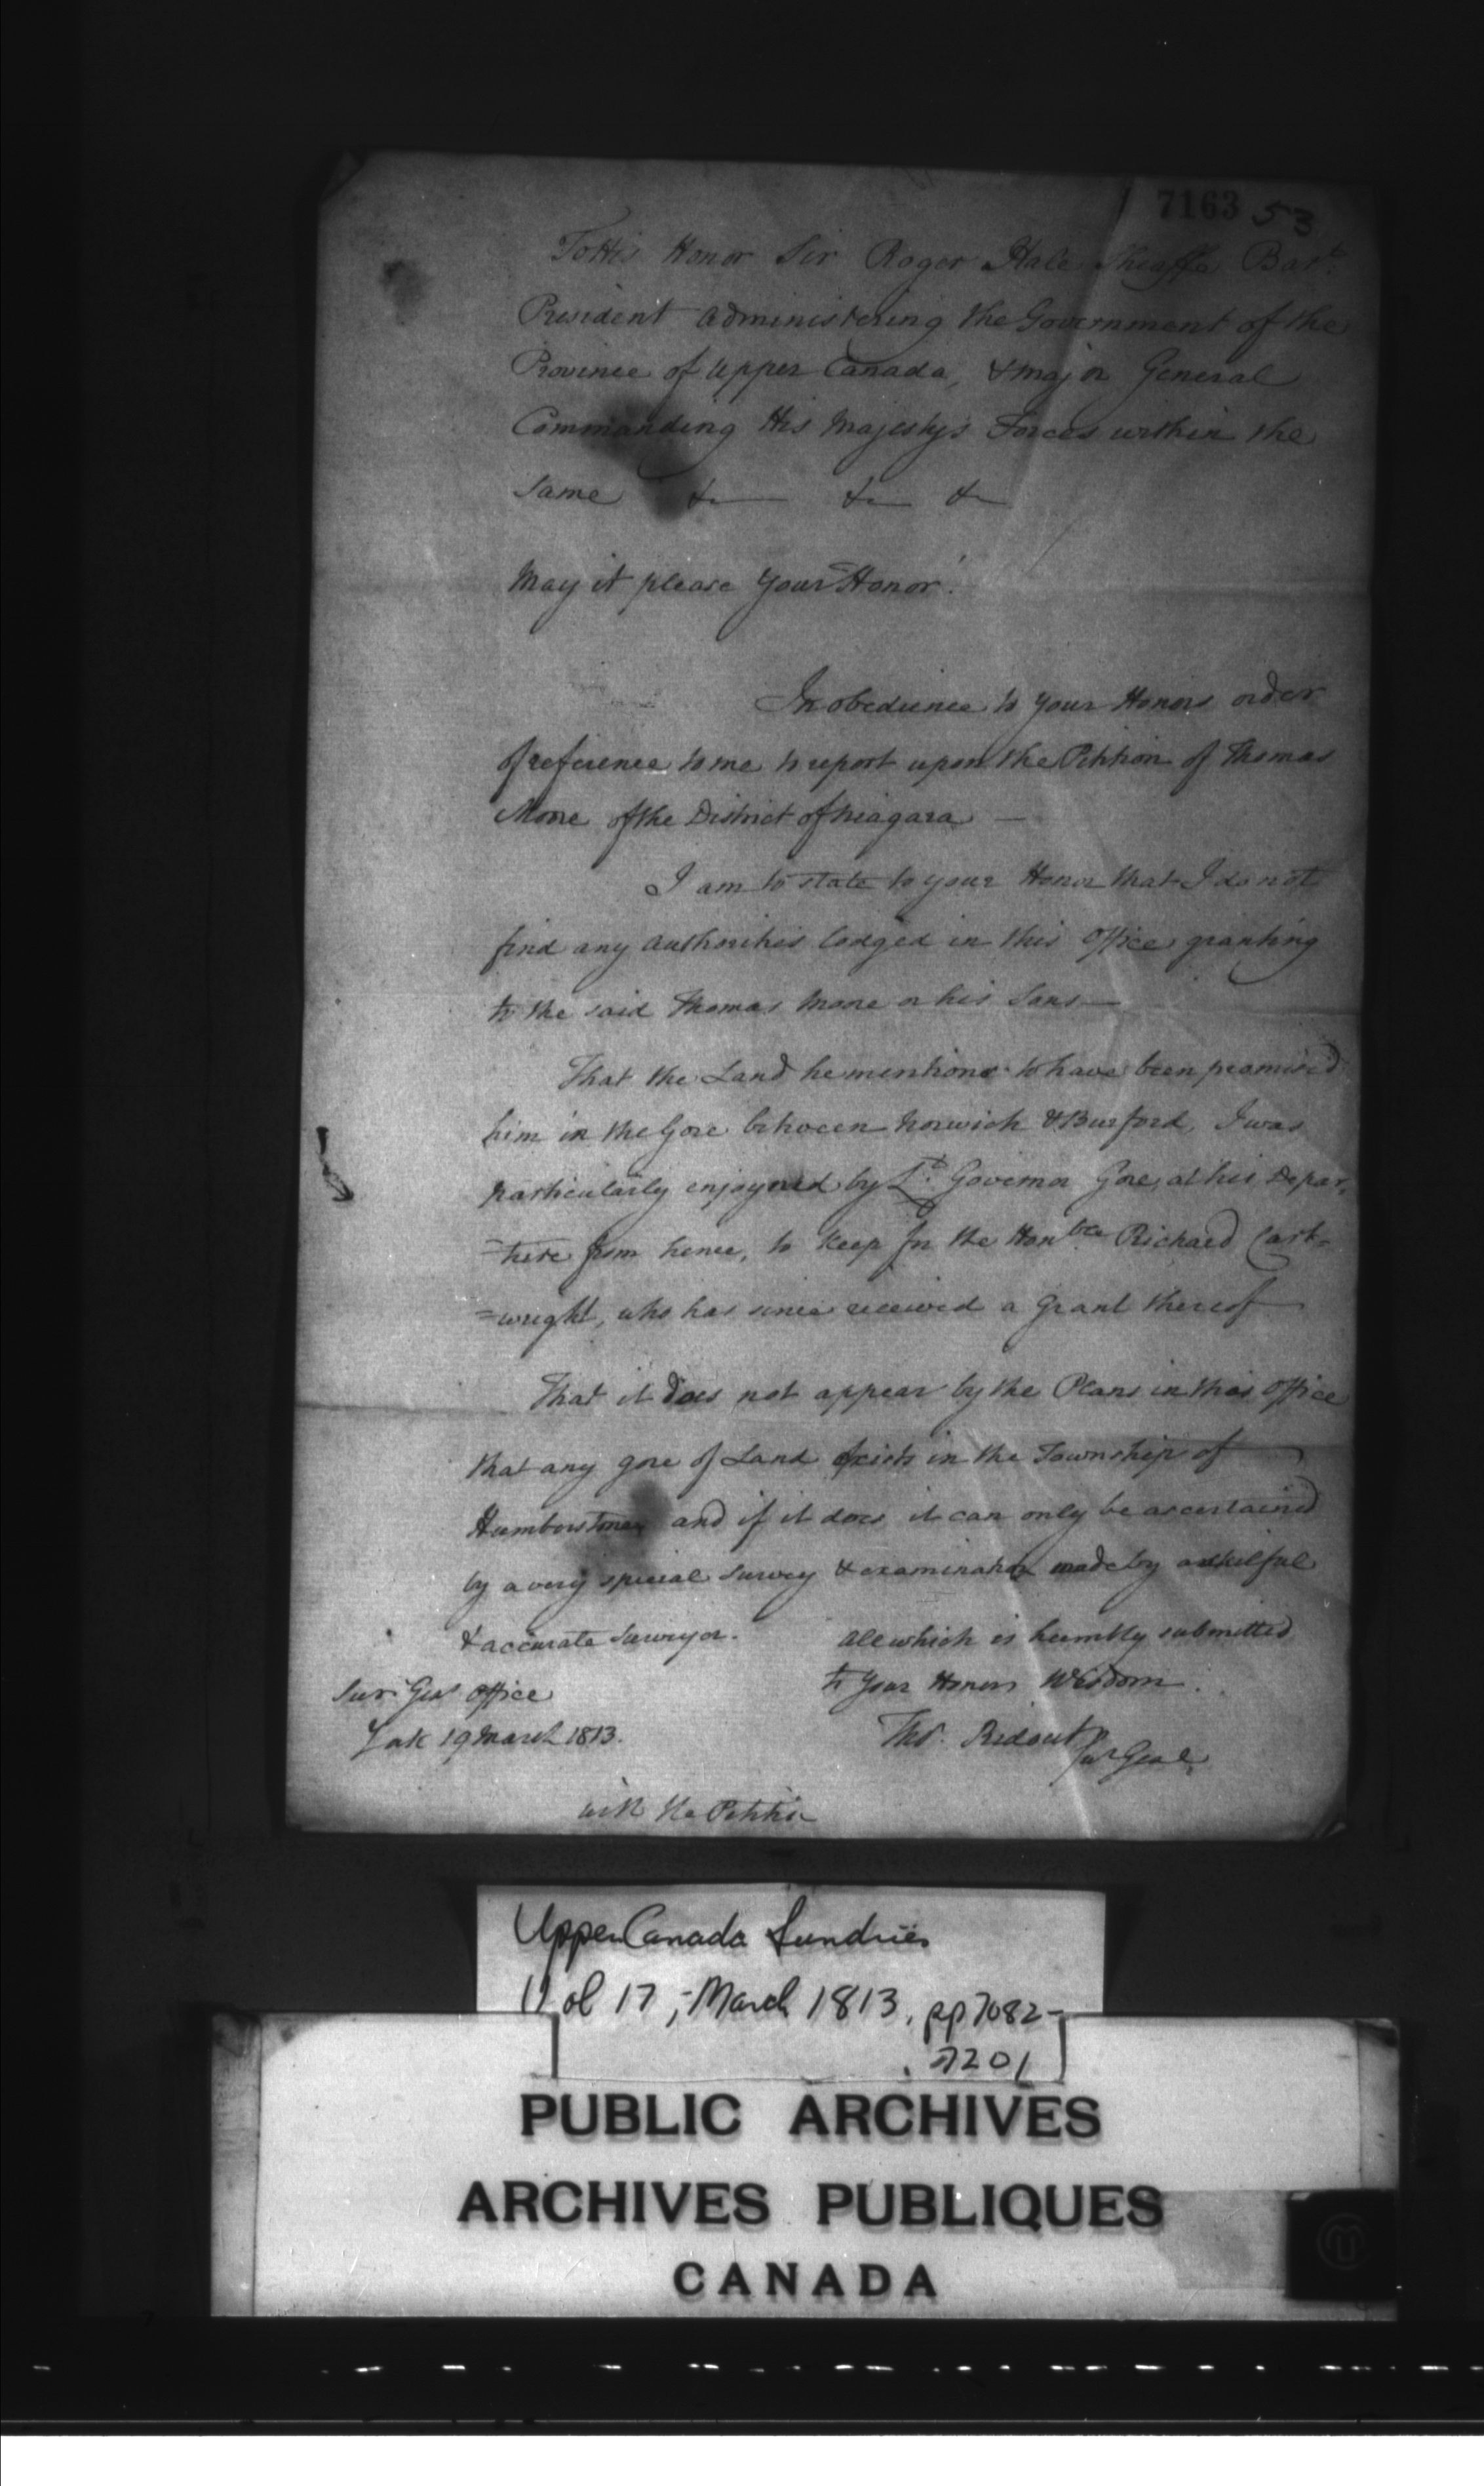 7163 53
To His Honor Sir Roger Hale Sheaffe Bart.
President administering the Government of the
Province of Upper Canada, & Major General
Commanding His Majesty's Forces within the
Same &c &c &c
May it please Your Honor!
In obedience to your Honors order
of reference to me to report upon the Petition of Thomas
Moore of the District of Niagara —
I am to state to your Honor that I do not
find any authorities lodged in this Office granting
to the said Thomas Moore or his Sons —
That the Land he mentions to have been promised
him in the Gore between Norwich & Burford, I was
particularly enjoyned by Lt. Governor Gore, at his Depar,
=ture from hence, to keep for the Honble Richard Cart=
=wright, who has since received a Grant thereof
That it does not appear by the Plans in this Office
that any gore of Land exists in the Township of
Humberstone and if it does it can only be ascertained
by a very special Survey & examination made by a skilful
& accurate Surveyor. All which is humbly submitted
to Your Honors Wisdom.
Sur. Genl Office
York 19 March 1813.
Thos. Ridout
Sur Genl.
with the Petition
Upper Canada Sundries
Vol 17, March 1813, pp 7082-
7201
PUBLIC ARCHIVES
ARCHIVES PUBLIQUES
CANADA